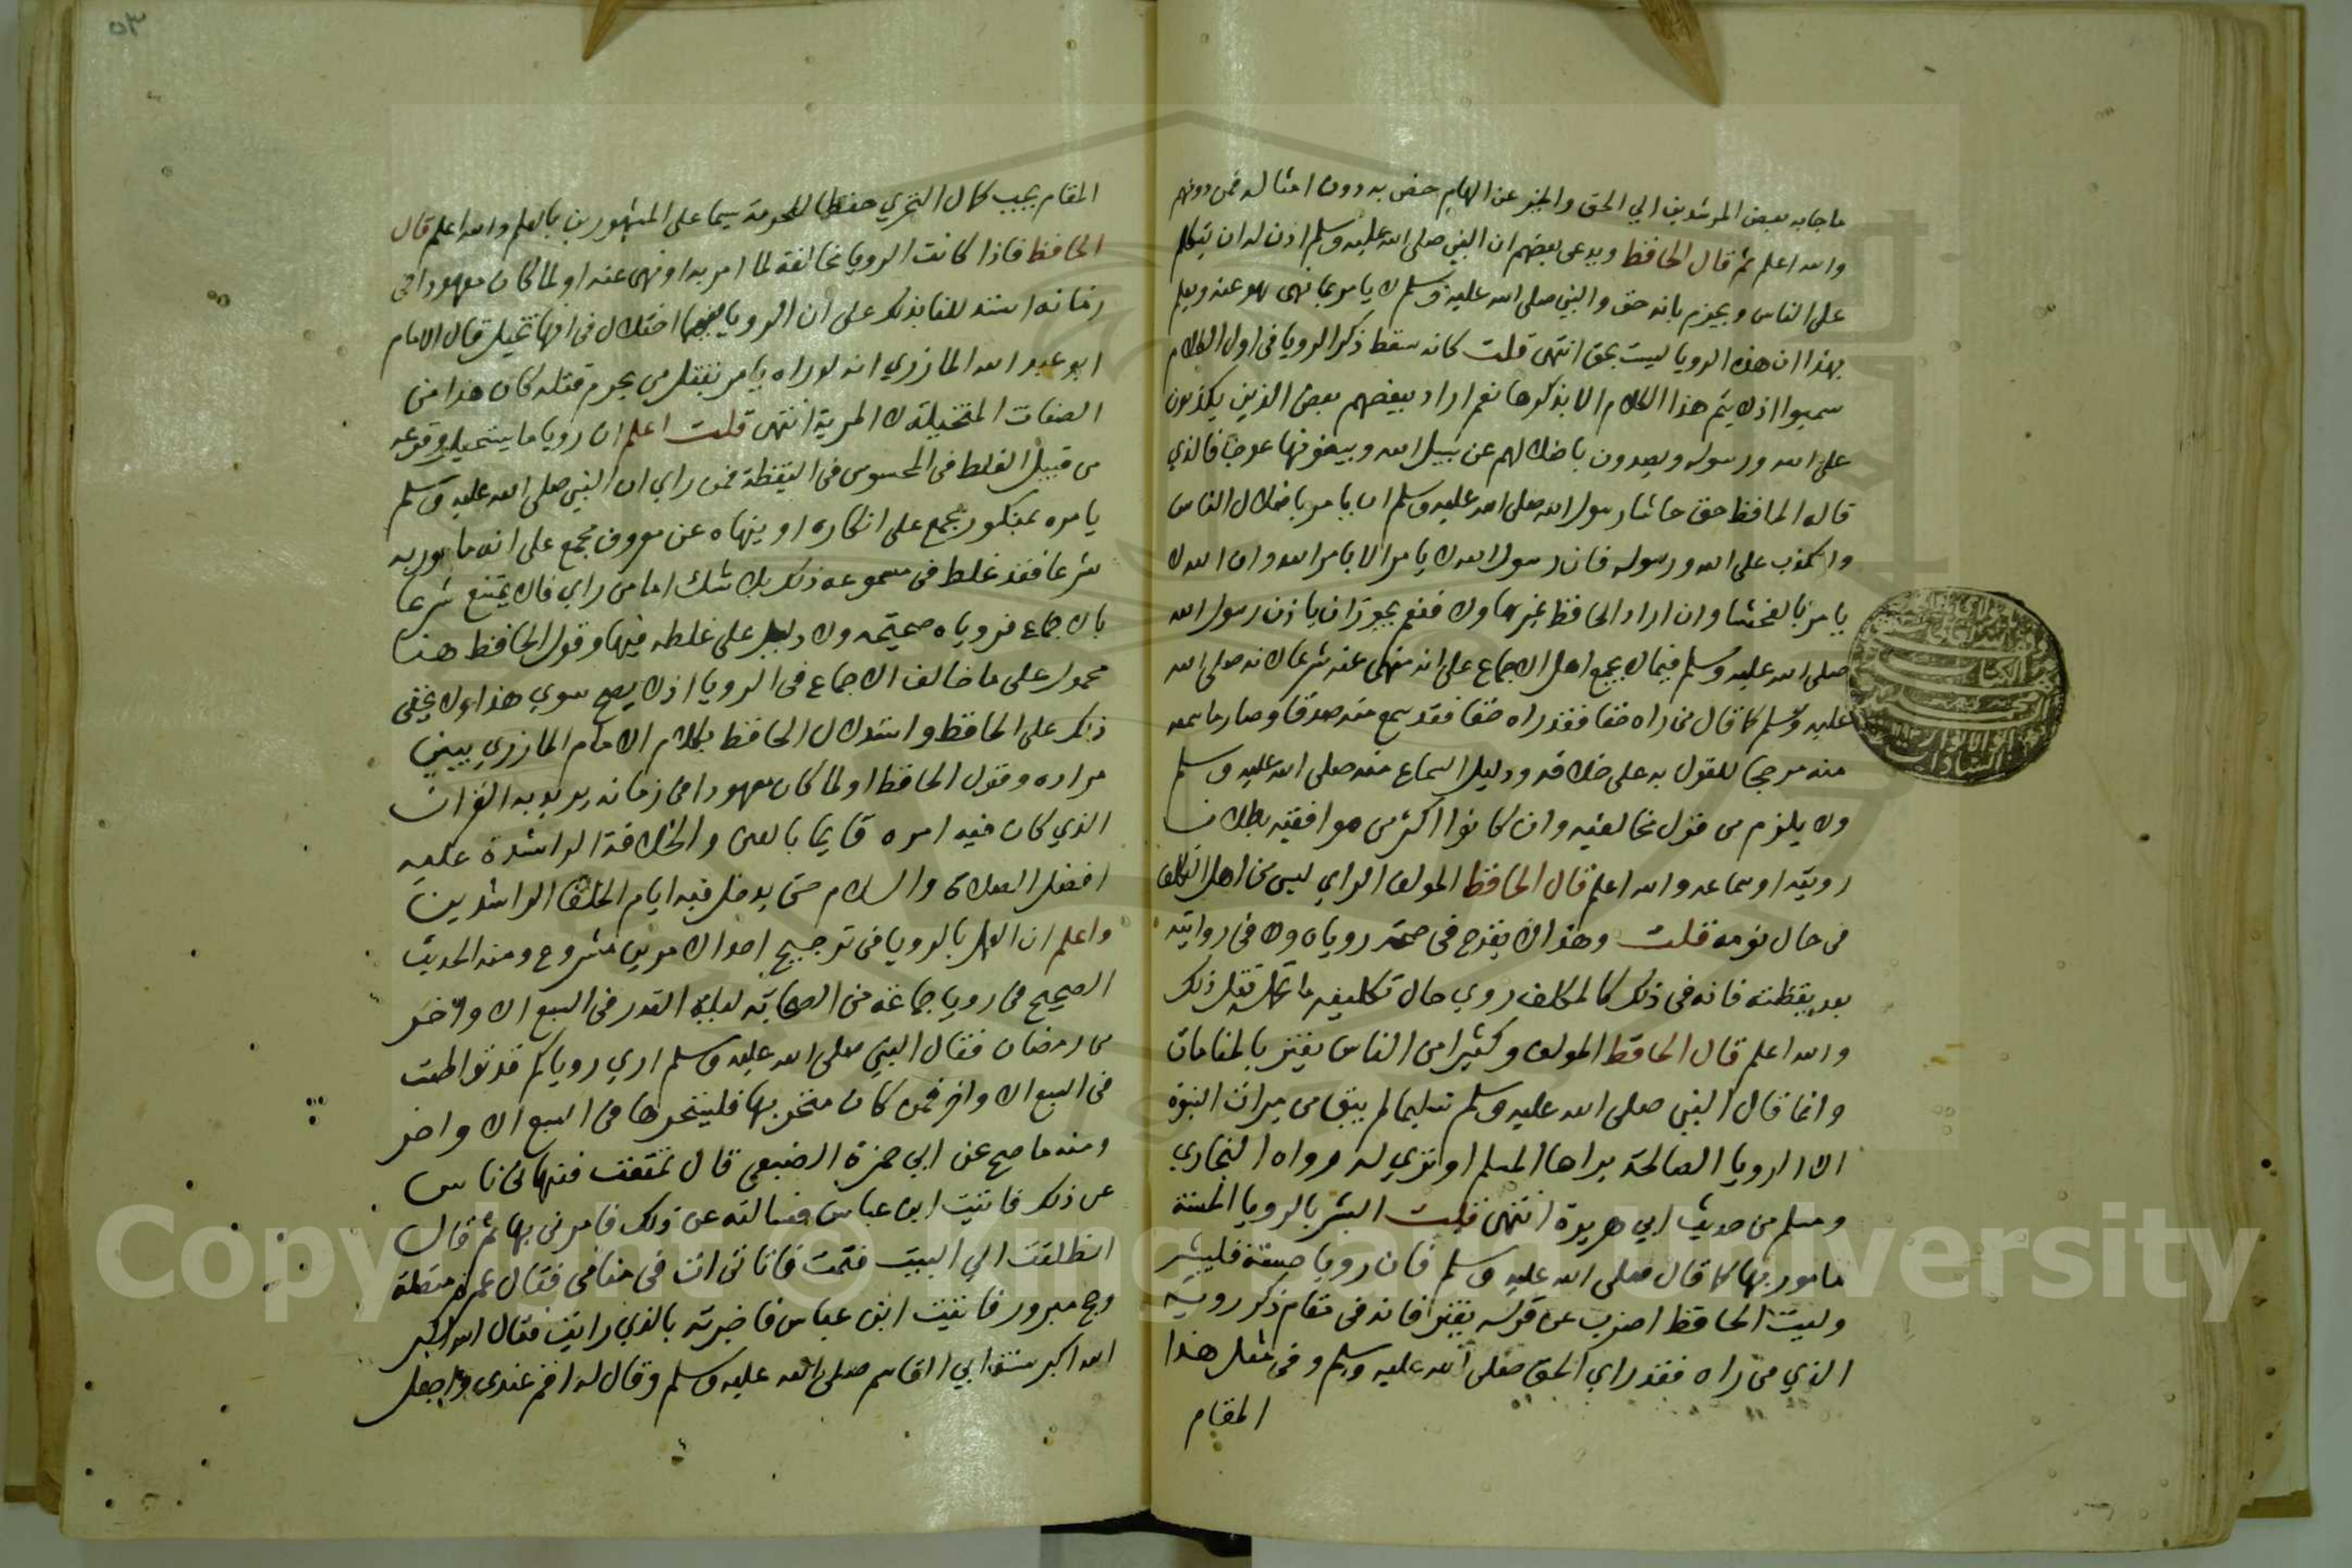 ما جا به بعض المرشدين الي الحق والخبر عن الهام خص به دون امثاله فمن دونهم
والله اعلم ثم قال الحافظ ويدعي بعضهم ان النبي صلى الله عليه وسلم اذن له ان يتكلم
على الناس ويجزم بانه حق والنبي صلى الله عليه وسلم لا يامر بما نهى هو عنه ويعلم
بهذا ان هذه الرويا ليست بحق انتهى قلت كانه سقط ذكر الرويا في اول الكلام
اذ لا يتم هذا الكلام الا بذكرها نعم اراد ببعضهم بعض الذين يكذبون
على الله ورسوله ويصدون باضلالهم عن سبيل الله ويبغونها عوجا فالذي
قاله الحافظ حق حاشا رسول الله صلى الله عليه وسلم ان يامر باضلال الناس
والكذب على الله ورسوله فان رسول الله لا يامر الا بامر الله وان الله لا
يامر بالفحشا وان اراد الحافظ غيرها ولا فنعم يجوز ان ياذن رسول الله
صلى الله عليه وسلم فيما لا يجمع اهل الاجماع على انه منهى عنه شرعا لانه صلى الله
عليه وسلم كما قال من راه حقا فقد راه حقا فقد سمع منه صدقا وصار ما سمعه
منه مرجحا للقول به على خلافه ودليل السماع منه صلى الله عليه وسلم
ولا يلزم من قول مخالفيه وان كانوا اكثر من موافقيه بطلان
رويته او سماعه والله اعلم قال الحافظ المولف الراي ليس من اهل التكلف
في حال نومه قلت وهذا لا يقدح في صحة روياه ولا في روايته
بعد يقظته فانه في ذلك كالمكلف روي حال تكليفه ما تحمله قبل ذلك
والله اعلم قال الحافظ المولف وكثيرا من الناس يغتر بالمنامات
وانما قال النبي صلى الله عليه وسلم تسليما لم يبق من ميراث النبوة
الا الرويا الصالحة يراها المسلم او ترى له رواه البخاري
ومسلم من حديث ابي هريرة انتهى قلت البشر بالرويا الحسنة
مامور بها كما قال صلى الله عليه وسلم فان رويا حسنة فليبشر
وليت الحافظ اضرب عن قوله يغتر فانه في مقام ذكر رويته
الذي من راه فقد راي الحق صلى الله عليه وسلم وفي مثل هذا
المقام
٥٣
المقام يجب كمال التحري حفظا للحرمة سيما على المشهورين بالعلم والله اعلم قال
الحافظ فاذا كانت الرويا مخالفة لما امر به او نهى عنه او لما كان معهودا في
زمانه استدللنا بذلك على ان الرويا فيها اختلال في انها تخيل قال الامام
ابو عبد الله المازري انه لو راه يامر بقتل من يحرم قتله كان هذا من
الصفات المتخيلة لا المرية انتهى قلت اعلم ان رويا ما يستحيل وقوعه
من قبيل الغلط في المحسوس في اليقظة فمن راي ان النبي صلى الله عليه وسلم
يامره بمنكور يجمع على انكاره او ينهاه عن معروف مجمع على انه مامور به
شرعا فقد غلط في مسموعه ذلك بلا شك اما من راي ما لا يمتنع شرعا
بالاجماع فروياه صحيحه ولا دليل على غلطه فيها وقول الحافظ هنا
محمول على ما خالف الاجماع في الرويا اذ لا يصح سوي هذا ولا يخفى
ذلك على الحافظ واستدلال الحافظ بكلام الامام المازري يبين
مراده وقول الحافظ او لما كان معهودا في زمانه يريد به القران
الذي كان فيه امره قايما بالعين والخلافة الراشدة عليه
افضل الصلاة والسلام حتى يدخل فيه ايام الخلفا الراشدين
واعلم ان العمل بالرويا في ترجيح احد الامرين مشروع ومنه الحديث
الصحيح في رويا جماعة من الصحابة ليلة القدر في السبع الاواخر
من رمضان فقال النبي صلى الله عليه وسلم اري روياكم قد تواطت
في السبع الاواخر فمن كان متحريها فليتحرها في السبع الاواخر
ومنه ما صح عن ابي حمزة الضبعي قال تمتعت فنهاني ناس
عن ذلك فاتيت ابن عباس فسالته عن ذلك فامرني بها ثم قال
انطلقت الي البيت فنمت فاتاني ات في منامي فقال عمرة متقبلة
وحج مبرور فاتيت ابن عباس فاخبرته بالذي رايت فقال الله اكبر
الله اكبر سنة ابي القاسم صلى الله عليه وسلم وقال له اقم عندي واجعل
Copyright © King Saud University